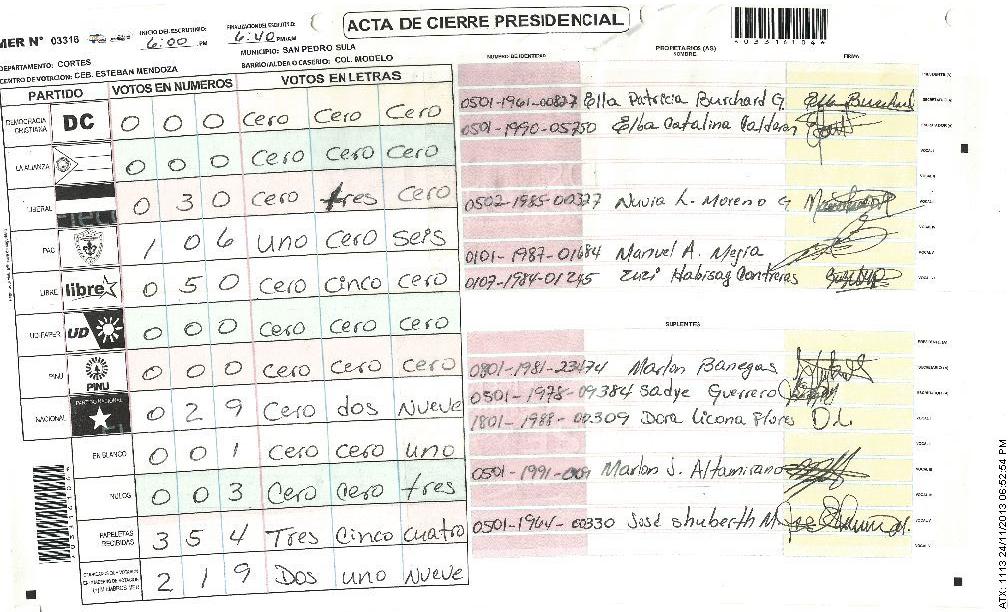 ACTA DE CIERRE PRESIDENCIAL
MER N° 03316
INICIO DEL ESCRUTINIO: 6:00 PM
FINALIZACION DEL ESCRUTINIO: 6:40 PM/AM
DEPARTAMENTO: CORTES
MUNICIPIO: SAN PEDRO SULA
CENTRO DE VOTACION: CEB. ESTEBAN MENDOZA
BARRIO/ALDEA O CASERIO: COL. MODELO
PARTIDO VOTOS EN NUMEROS VOTOS EN LETRAS
DEMOCRACIA CRISTIANA DC 0 0 0 Cero Cero Cero
LA ALIANZA 0 0 0 Cero Cero Cero
LIBERAL 0 3 0 Cero tres Cero
PAC 1 0 6 Uno Cero Seis
LIBRE libre 0 5 0 Cero Cinco Cero
UD/FAPER UD 0 0 0 Cero Cero Cero
PINU PINU 0 0 0 Cero Cero Cero
NACIONAL PARTIDO NACIONAL 0 2 9 Cero dos Nueve
EN BLANCO 0 0 1 Cero Cero uno
NULOS 0 0 3 Cero Cero tres
PAPELETAS RECIBIDAS 3 5 4 Tres Cinco Cuatro
2 1 9 Dos uno Nueve
PROPIETARIOS (AS)
NUMERO DE IDENTIDAD NOMBRE FIRMA
0501-1961-00827 Elba Patricia Burchard G. Elba Burchard
0501-1990-05750 Elba Catalina Calderon
0502-1985-00327 Nuvia L. Moreno G
0101-1987-01684 Manuel A. Mejia
0107-1984-01245 Zuzi Habisag Contreras
SUPLENTES
0801-1981-23474 Marlon Banegas
0501-1978-09384 Sadye Guerrero
1801-1988-00309 Dora Licona Flores D.L
0501-1991- Marlon J. Altamirano
0501-1964-00330 José Shuberth M.
4033161046
ATX: 1113 24/11/2013 06:52:54 PM